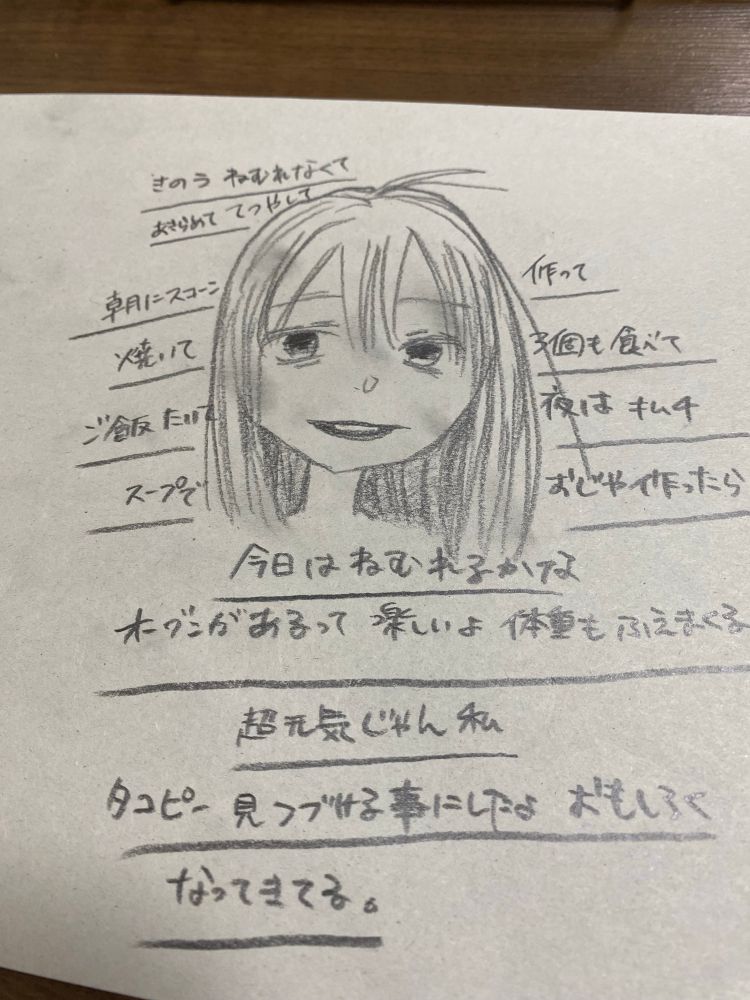 きのう ねむれなくて
あきらめて てつやして
朝にスコーン
焼いて
ご飯 たいて
スープで
作って
3個も食べて
夜は キムチ
おじや作ったら
今日は ねむれるかな
オーブンがあるって 楽しいよ 体重も ふえまくる
超元気じゃん 私
タコピー 見つづける事にしたよ おもしろく
なってきてる。